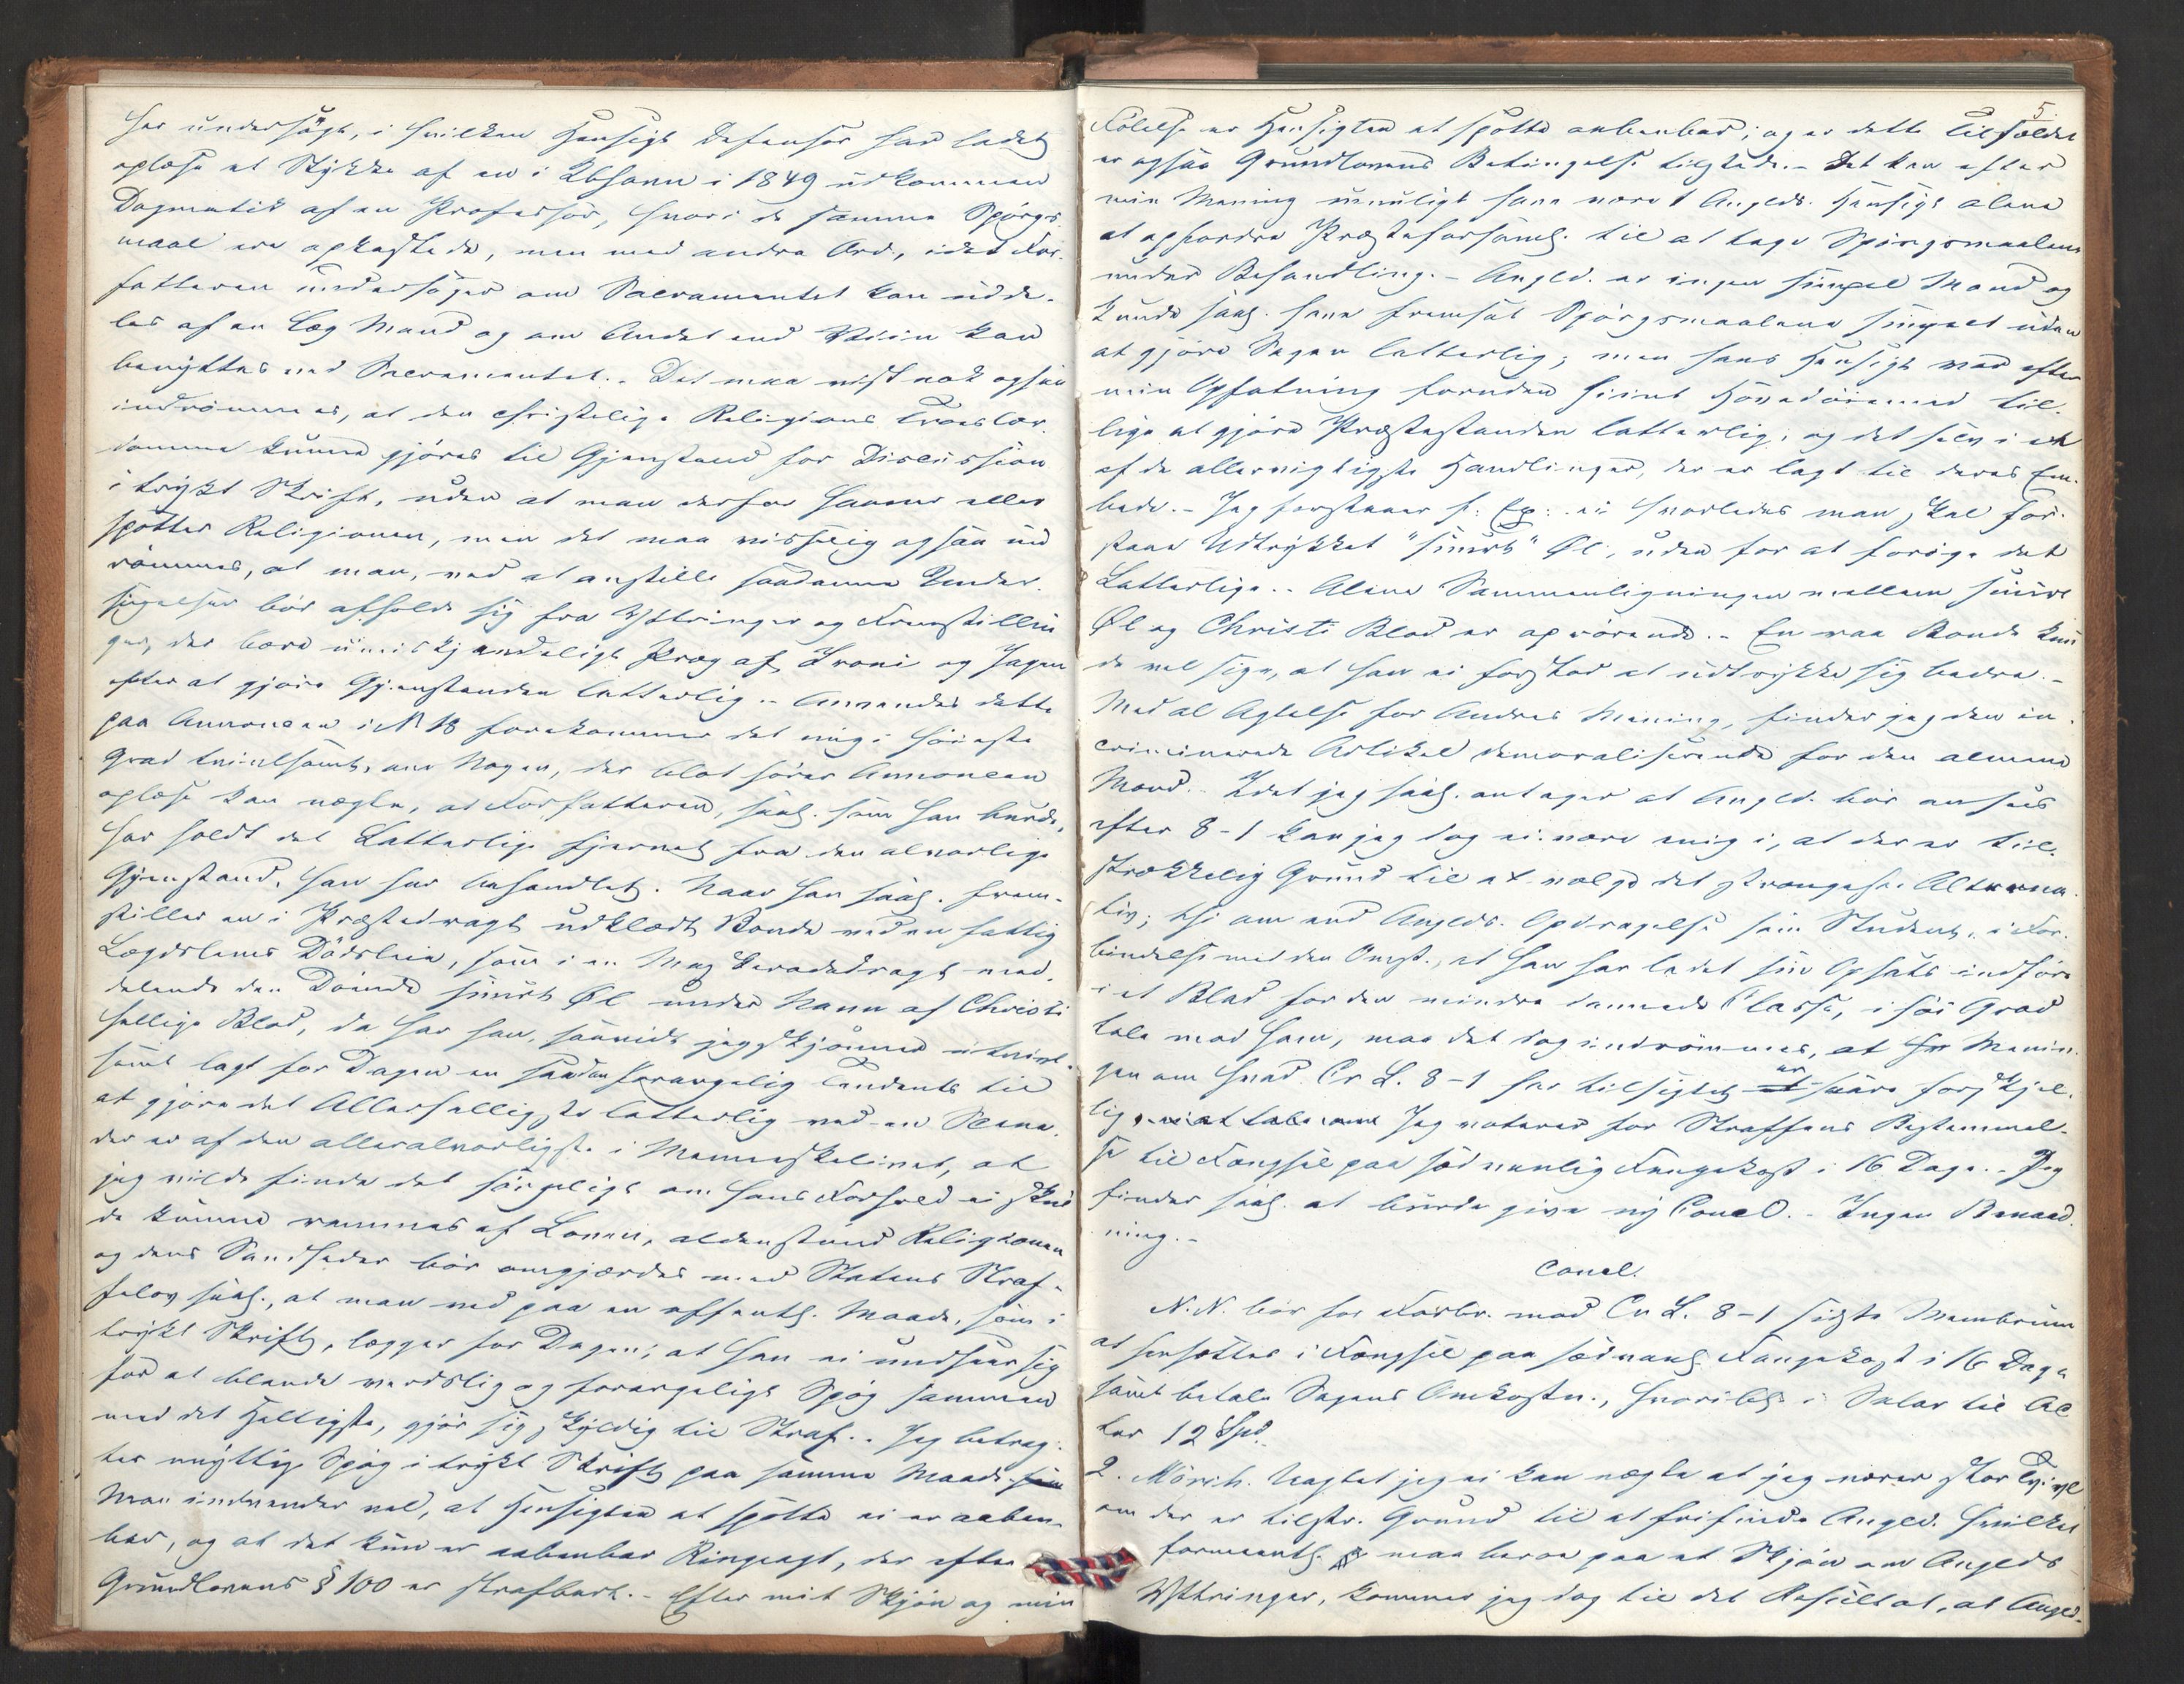 har undersøgt, i hvilken Hensigt Defensor har ladet
oplæse et Stykke af en i Kbhavn i 1849 udkommen
Dogmatik af en Professor, hvori de samme Spørgs-
maal ere opkastede, men med andre Ord, idet For-
fatteren undersøger om Sacramentet kan udde-
les af en Læg Mand og om Andet end Viin kan
benyttes ved Sacramentet. Det maa vist nok ogsaa
indrømmes, at den christelige Religions Troeslær-
domme kunne gjøres til Gjenstand for Discussion
i trykt Skrift, uden at man derfor haaner eller
spotter Religionen, men det maa visselig ogsaa ind
rømmes, at man, ved at anstille saadanne Under-
søgelser bør afholde sig fra Yttringer og Fremstillin
ger, der bære umiskjendeligt Præg af Ironi og Jagen
efter at gjøre Gjenstanden latterlig. - Anvendes dette
paa Annoncen i N 18 forekommer det mig i høieste
Grad tvivlsomt, om Nogen, der blot hører Annoncen
oplæse kan nægte, at Forfatteren, saal. som han burde,
har holdt det Latterlige fjernet fra den alvorlige
Gjenstand, han har behandlet. Naar han saal. frem-
stiller en i Præstedragt udklædt Bonde ved en fattig
Lægdslems Dødsleie, som i en Maskeradedragt med-
delende den Døende suurt Øl under Navn af Christi
hellige Blod, da har han, saavidt jeg skjønner utvivl-
somt lagt for Dagen en saadan forargelig Tendents til
at gjøre det Allerhelligste latterlig ved en Scene,
der er af den alleralvorligste i Menneskelivet, at
jeg vilde finde det sørgeligt om hans Forhold ei skul
de kunne rammes af Loven, aldenstund Religionen
og dens Sandheder bør omgjærdes med Statens Straf-
felov saal., at man ved paa en offentl. Maade, som i
trykt Skrift, lægger for Dagen, at han ei undseer sig
for at blande verdslig og forargeligt Spøg sammen
med det Helligste, gjør sig skyldig til Straf. - Jeg betrag-
ter unyttig Spøg i trykt Skrift paa samme Maade som
Man indvender vel, at Hensigten at spotte ei er aaben-
bar, og at det kun er aabenbar Ringeagt, der efter
Grundlovens § 100 er strafbart. - Efter mit Skjøn og min
5
Følelse er Hensigten at spotte aabenbar; og er dette Tilfældet
er ogsaa Grundlovens Betingelse tilstede. - Det kan efter
min Mening umuligt have været Angeds. Hensigt alene
at opfordre Præsteforsaml. til at tage Spørgsmaalene
under Behandling. - Angld. er ingen simpel Mand og
kunde saal. have fremsat Spørgsmaalene simpelt uden
at gjøre Sagen latterlig; men hans Hensigt var efter
min Opfatning foruden hiint Hovedøiemed til-
lige at gjøre Præstestanden latterlig, og det selv i en
af de allervigtigste Handlinger, der er lagt til deres Em-
bede. - Jeg forstaaer f: Ex: ei hvorledes man skal for-
staae Udtrykket "suurt" Øl, uden for at forøge det
Latterlige. - Alene Sammenligningen mellem suurt
Øl og Christi Blod er oprørende. - En raa Bonde kun
de vel sige, at han ei forstod at udtrykke sig bedre. -
Med al Agtelse for Andres Mening, finder jeg den in-
criminerede Artikel demoraliserende for den almene
Mand. Idet jeg saal. antager at Angld. bør ansees
efter 8-1 kan jeg dog ei være enig i, at der er til-
strækkelig Grund til at vælge det strængeste Alterna-
tiv; thi om end Angeds. Opdragelse som Student, i For-
bindelse med den Omst., at han har ladet sin Opsats indføre
i et Blad for den mindre dannede Classe, i høi Grad
tale mod ham, maa det dog indrømmes, at Menin-
gen om hvad Cr L. 8-1 har tilsigtet er forskjel-
lig Jeg voterer for Straffens Bestemmel-
se til Fængsel paa sædvanlig Fangekost i 16 Dage. - Jeg
finder saal. at burde give ny Concl. - Ingen Benaad-
ning. -
Concl.
N. N. bør for Forbr. mod Cr L. 8-1 sidste Membrum
at hensættes i Fængsel paa sædvanl. Fangekost i 16 Dage
samt betale Sagens Omkostn., hvoribl. i Salær til Ac
tor 12 Spd.
2. Mörch. Uagtet jeg ei kan nægte at jeg nærer stor Tvivl
om der er tilstr. Grund til at frifinde Angld. hvilket
formeentl. maa beroe paa et Skjøn om Angeds
Yttringer, kommer jeg dog til det Resultat, at Anged-